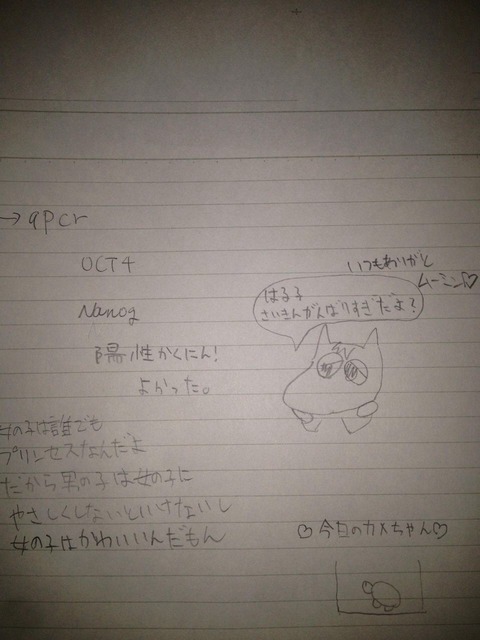 → qpcr
OCT4
Nanog
陽性かくにん!
よかった。
いつもありがと
ムーミン♡
はる子
さいきんがんばりすぎだよ?
女の子は誰でも
プリンセスなんだよ
だから男の子は女の子に
やさしくしないといけないし
女の子はかわいいんだもん
♡今日のカメちゃん♡